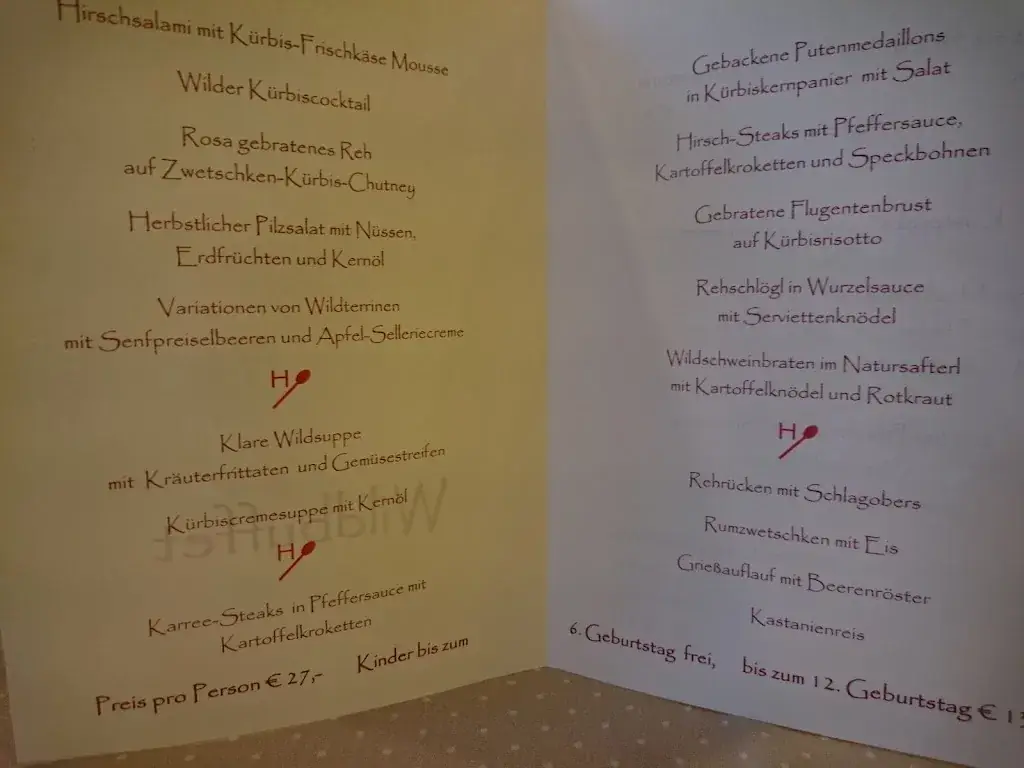 Hirschsalami mit Kürbis-Frischkäse Mousse
Wilder Kürbiscocktail
Rosa gebratenes Reh
auf Zwetschken-Kürbis-Chutney
Herbstlicher Pilzsalat mit Nüssen,
Erdfrüchten und Kernöl
Variationen von Wildterrinen
mit Senfpreiselbeeren und Apfel-Selleriecreme
H
Klare Wildsuppe
mit Kräuterfrittaten und Gemüsestreifen
Kürbiscremesuppe mit Kernöl
Wildbuffet
H
Karree-Steaks in Pfeffersauce mit
Kartoffelkroketten
Preis pro Person € 27,- Kinder bis zum
Gebackene Putenmedaillons
in Kürbiskernpanier mit Salat
Hirsch-Steaks mit Pfeffersauce,
Kartoffelkroketten und Speckbohnen
Gebratene Flugentenbrust
auf Kürbisrisotto
Rehschlögl in Wurzelsauce
mit Serviettenknödel
Wildschweinbraten im Natursafterl
mit Kartoffelknödel und Rotkraut
H
Rehrücken mit Schlagobers
Rumzwetschken mit Eis
Grießauflauf mit Beerenröster
Kastanienreis
6. Geburtstag frei, bis zum 12. Geburtstag €